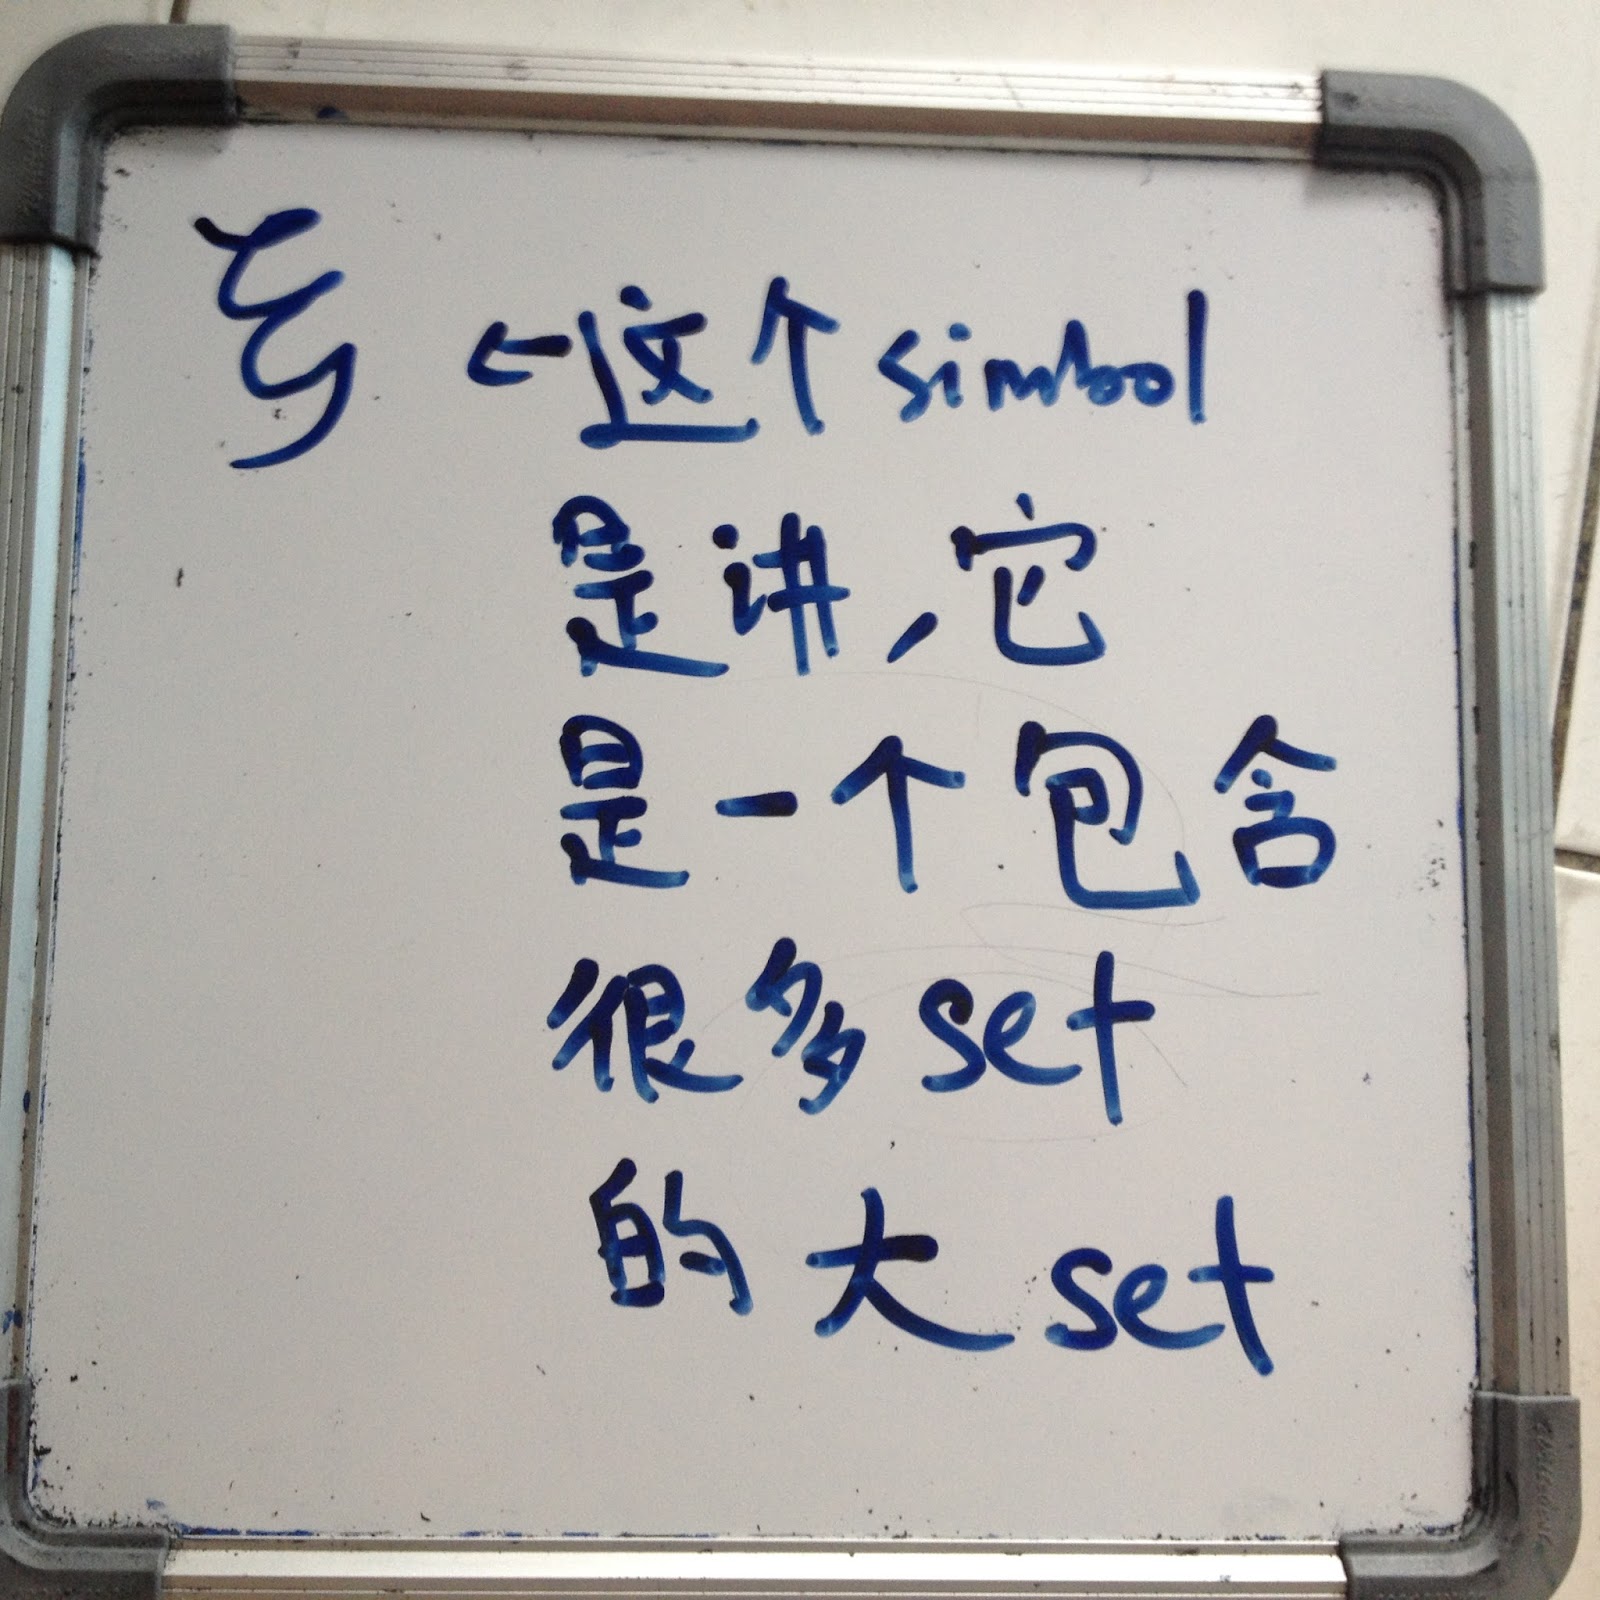 ξ ←这个simbol
是讲,它
是一个包含
很多set
的大set